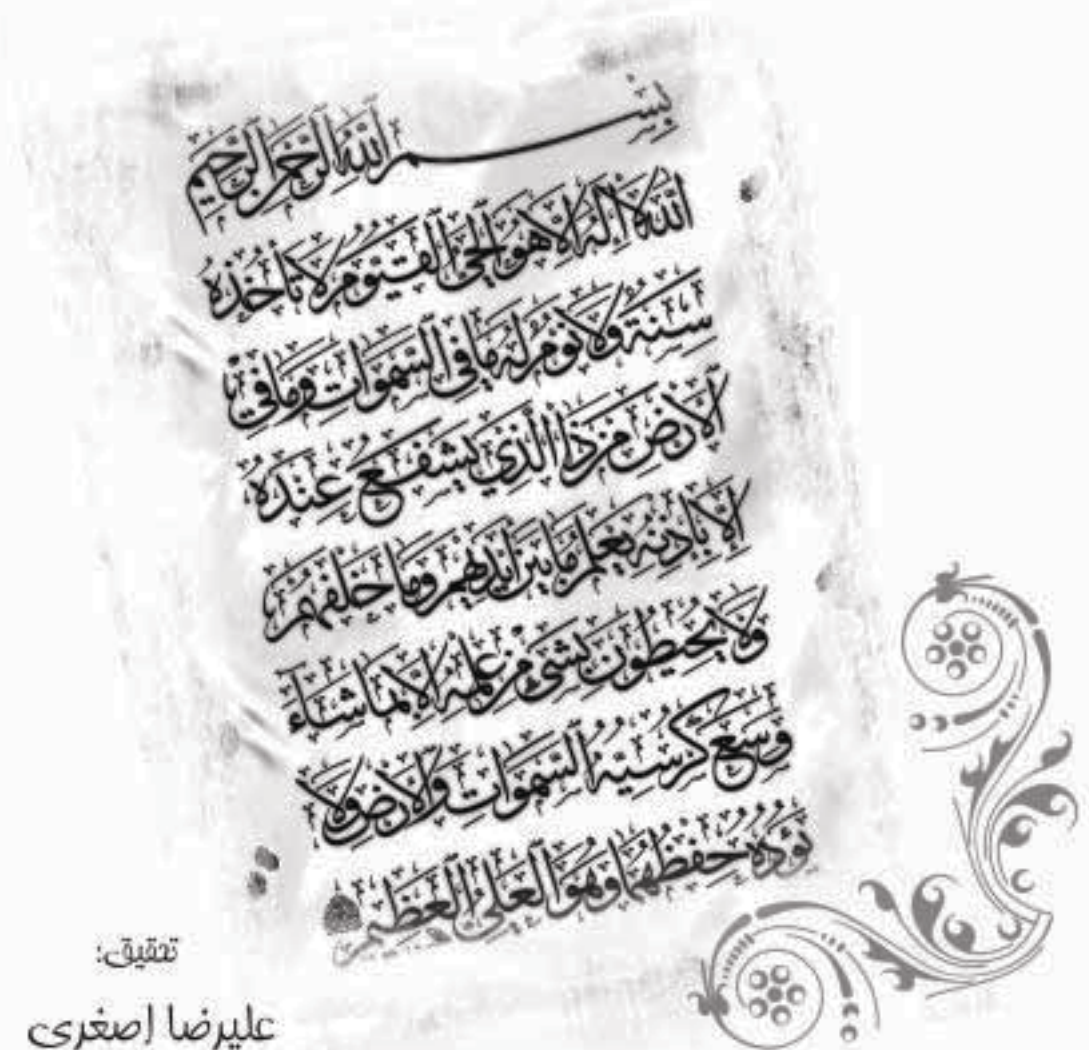 بِسْمِ اللَّهِ الرَّحْمٰنِ الرَّحِيمِ
اللَّهُ لَا إِلٰهَ إِلَّا هُوَ الْحَيُّ الْقَيُّومُ لَا تَأْخُذُهُ
سِنَةٌ وَلَا نَوْمٌ لَهُ مَا فِي السَّمٰوَاتِ وَمَا فِي
الْأَرْضِ مَنْ ذَا الَّذِي يَشْفَعُ عِنْدَهُ
إِلَّا بِإِذْنِهِ يَعْلَمُ مَا بَيْنَ أَيْدِيهِمْ وَمَا خَلْفَهُمْ
وَلَا يُحِيطُونَ بِشَيْءٍ مِنْ عِلْمِهِ إِلَّا بِمَا شَاءَ
وَسِعَ كُرْسِيُّهُ السَّمٰوَاتِ وَالْأَرْضَ وَلَا
يَؤُدُهُ حِفْظُهُمَا وَهُوَ الْعَلِيُّ الْعَظِيمُ
تحقیق:
علیرضا اصغری